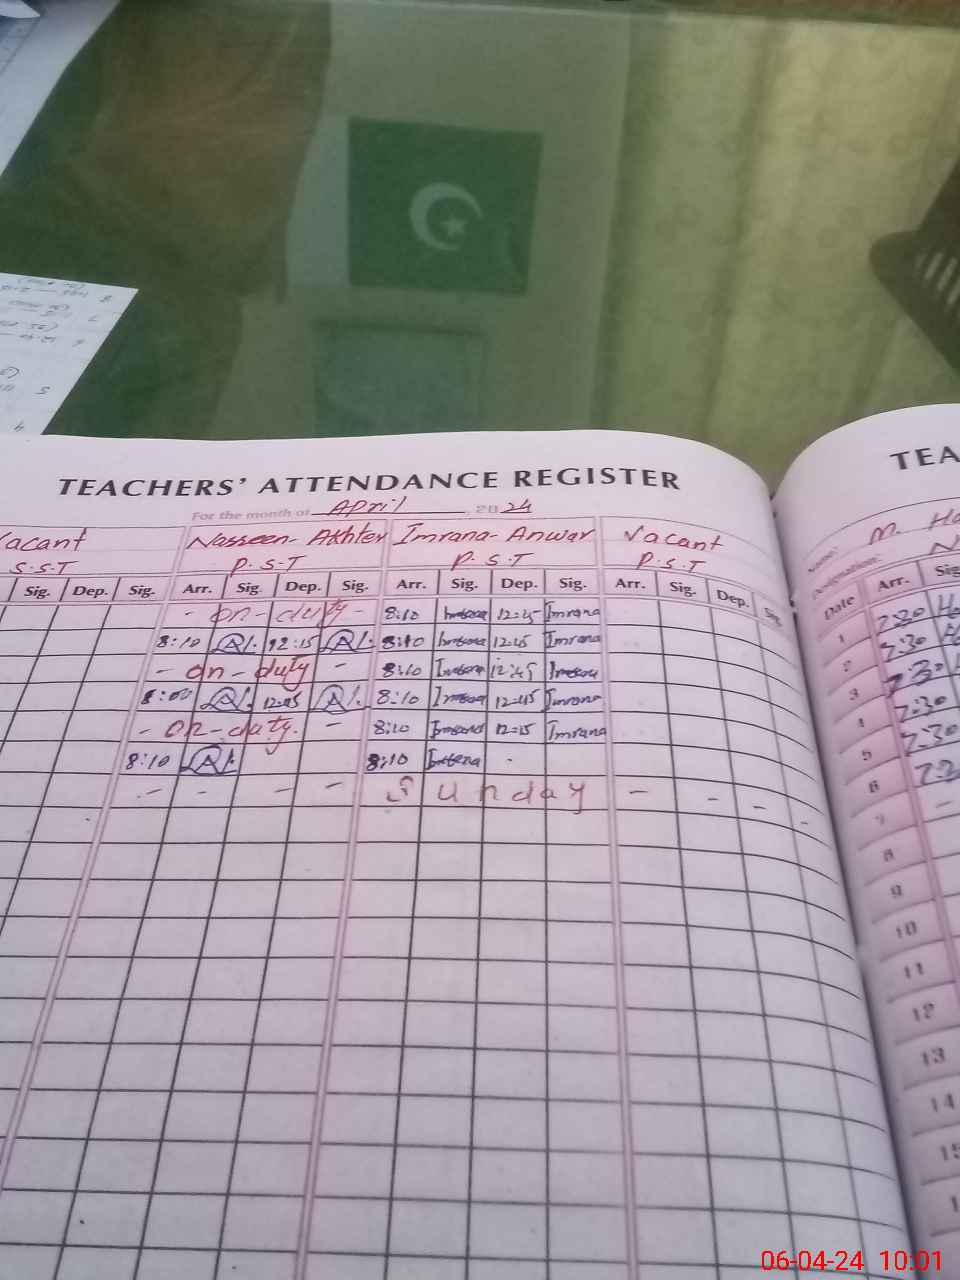 TEACHERS' ATTENDANCE REGISTER
TEA
For the month of April, 2024
Vacant Nasseen-Akhter Imrana-Anwar Vacant M.
S.S.T P.S.T P.S.T P.S.T
Name:
Designation:
Sig. Dep. Sig. Arr. Sig. Dep. Sig. Arr. Sig. Dep. Sig. Arr. Sig. Dep. Sig. Date Arr. Sig
- on-duty- 8:10 Imrana 12:45 Imrana 1 7:30
8:10 12:15 8:10 Imrana 12:45 Imrana 2 7:30
- on-duty - 8:10 Imrana 12:45 Imrana 3 7:30
8:00 12:45 8:10 Imrana 12:45 Imrana 4 7:30
- on-duty. - 8:10 Imrana 12:15 Imrana 5 7:30
8:10 8:10 Imrana - 6
- - - - Sunday - - - - 7 -
8
9
10
11
12
13
14
15
06-04-24 10:01